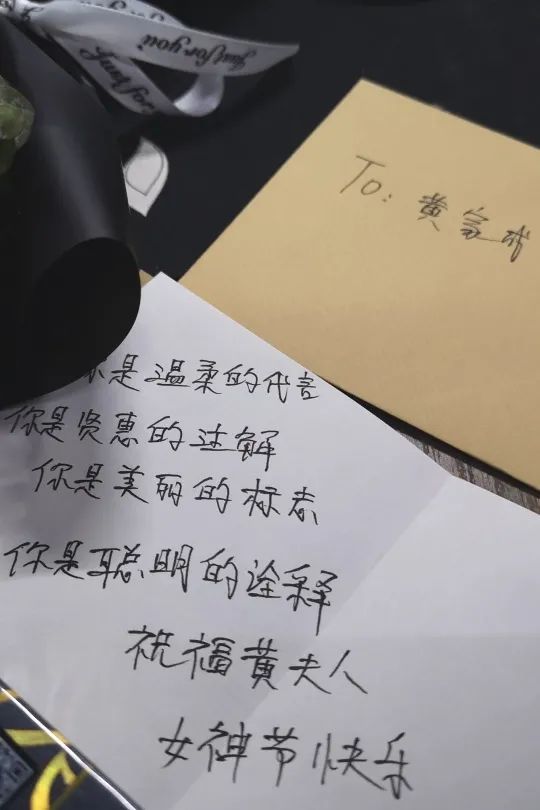 Just for you
To: 黄富
你是温柔的代言
你是贤惠的注解
你是美丽的标志
你是聪明的诠释
祝福黄夫人
女神节快乐